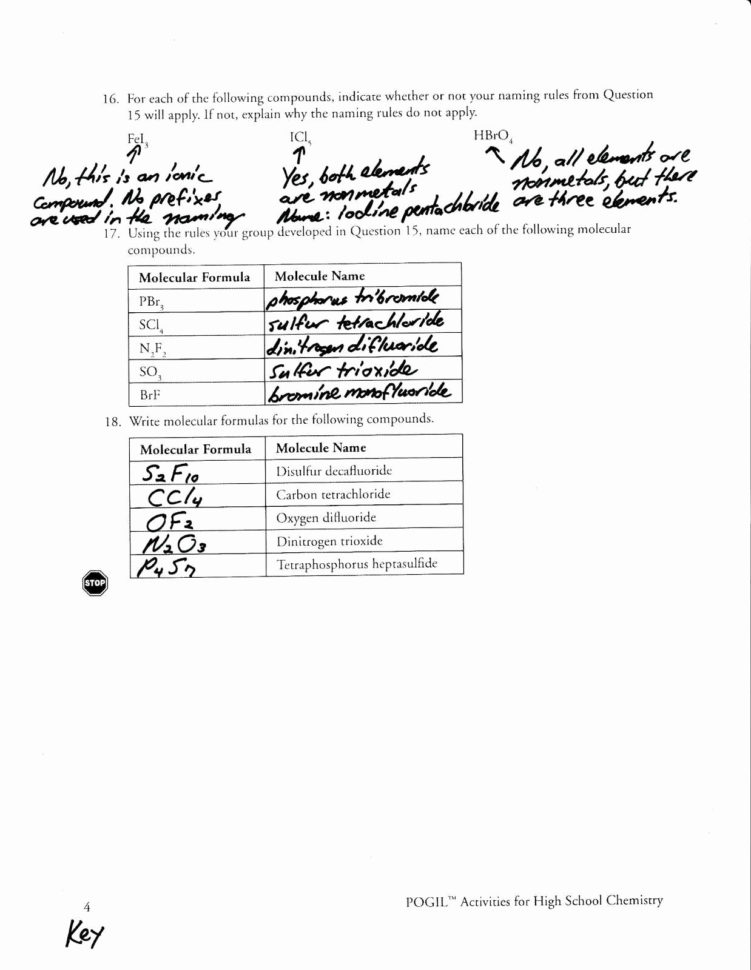 16. For each of the following compounds, indicate whether or not your naming rules from Question
15 will apply. If not, explain why the naming rules do not apply.
FeI₃ ICl₅ HBrO₄
No, this is an ionic
Compound. No prefixes
are used in the naming
Yes, both elements
are nonmetals
Name: Iodine pentachloride
No, all elements are
nonmetals, but there
are three elements.
17. Using the rules your group developed in Question 15, name each of the following molecular
compounds.
Molecular Formula Molecule Name
PBr₃ phosphorus tribromide
SCl₄ sulfur tetrachloride
N₂F₂ dinitrogen difluoride
SO₃ Sulfur trioxide
BrF bromine monofluoride
18. Write molecular formulas for the following compounds.
Molecular Formula Molecule Name
S₂F₁₀ Disulfur decafluoride
CCl₄ Carbon tetrachloride
OF₂ Oxygen difluoride
N₂O₃ Dinitrogen trioxide
P₄S₇ Tetraphosphorus heptasulfide
STOP
4 POGIL™ Activities for High School Chemistry
Key